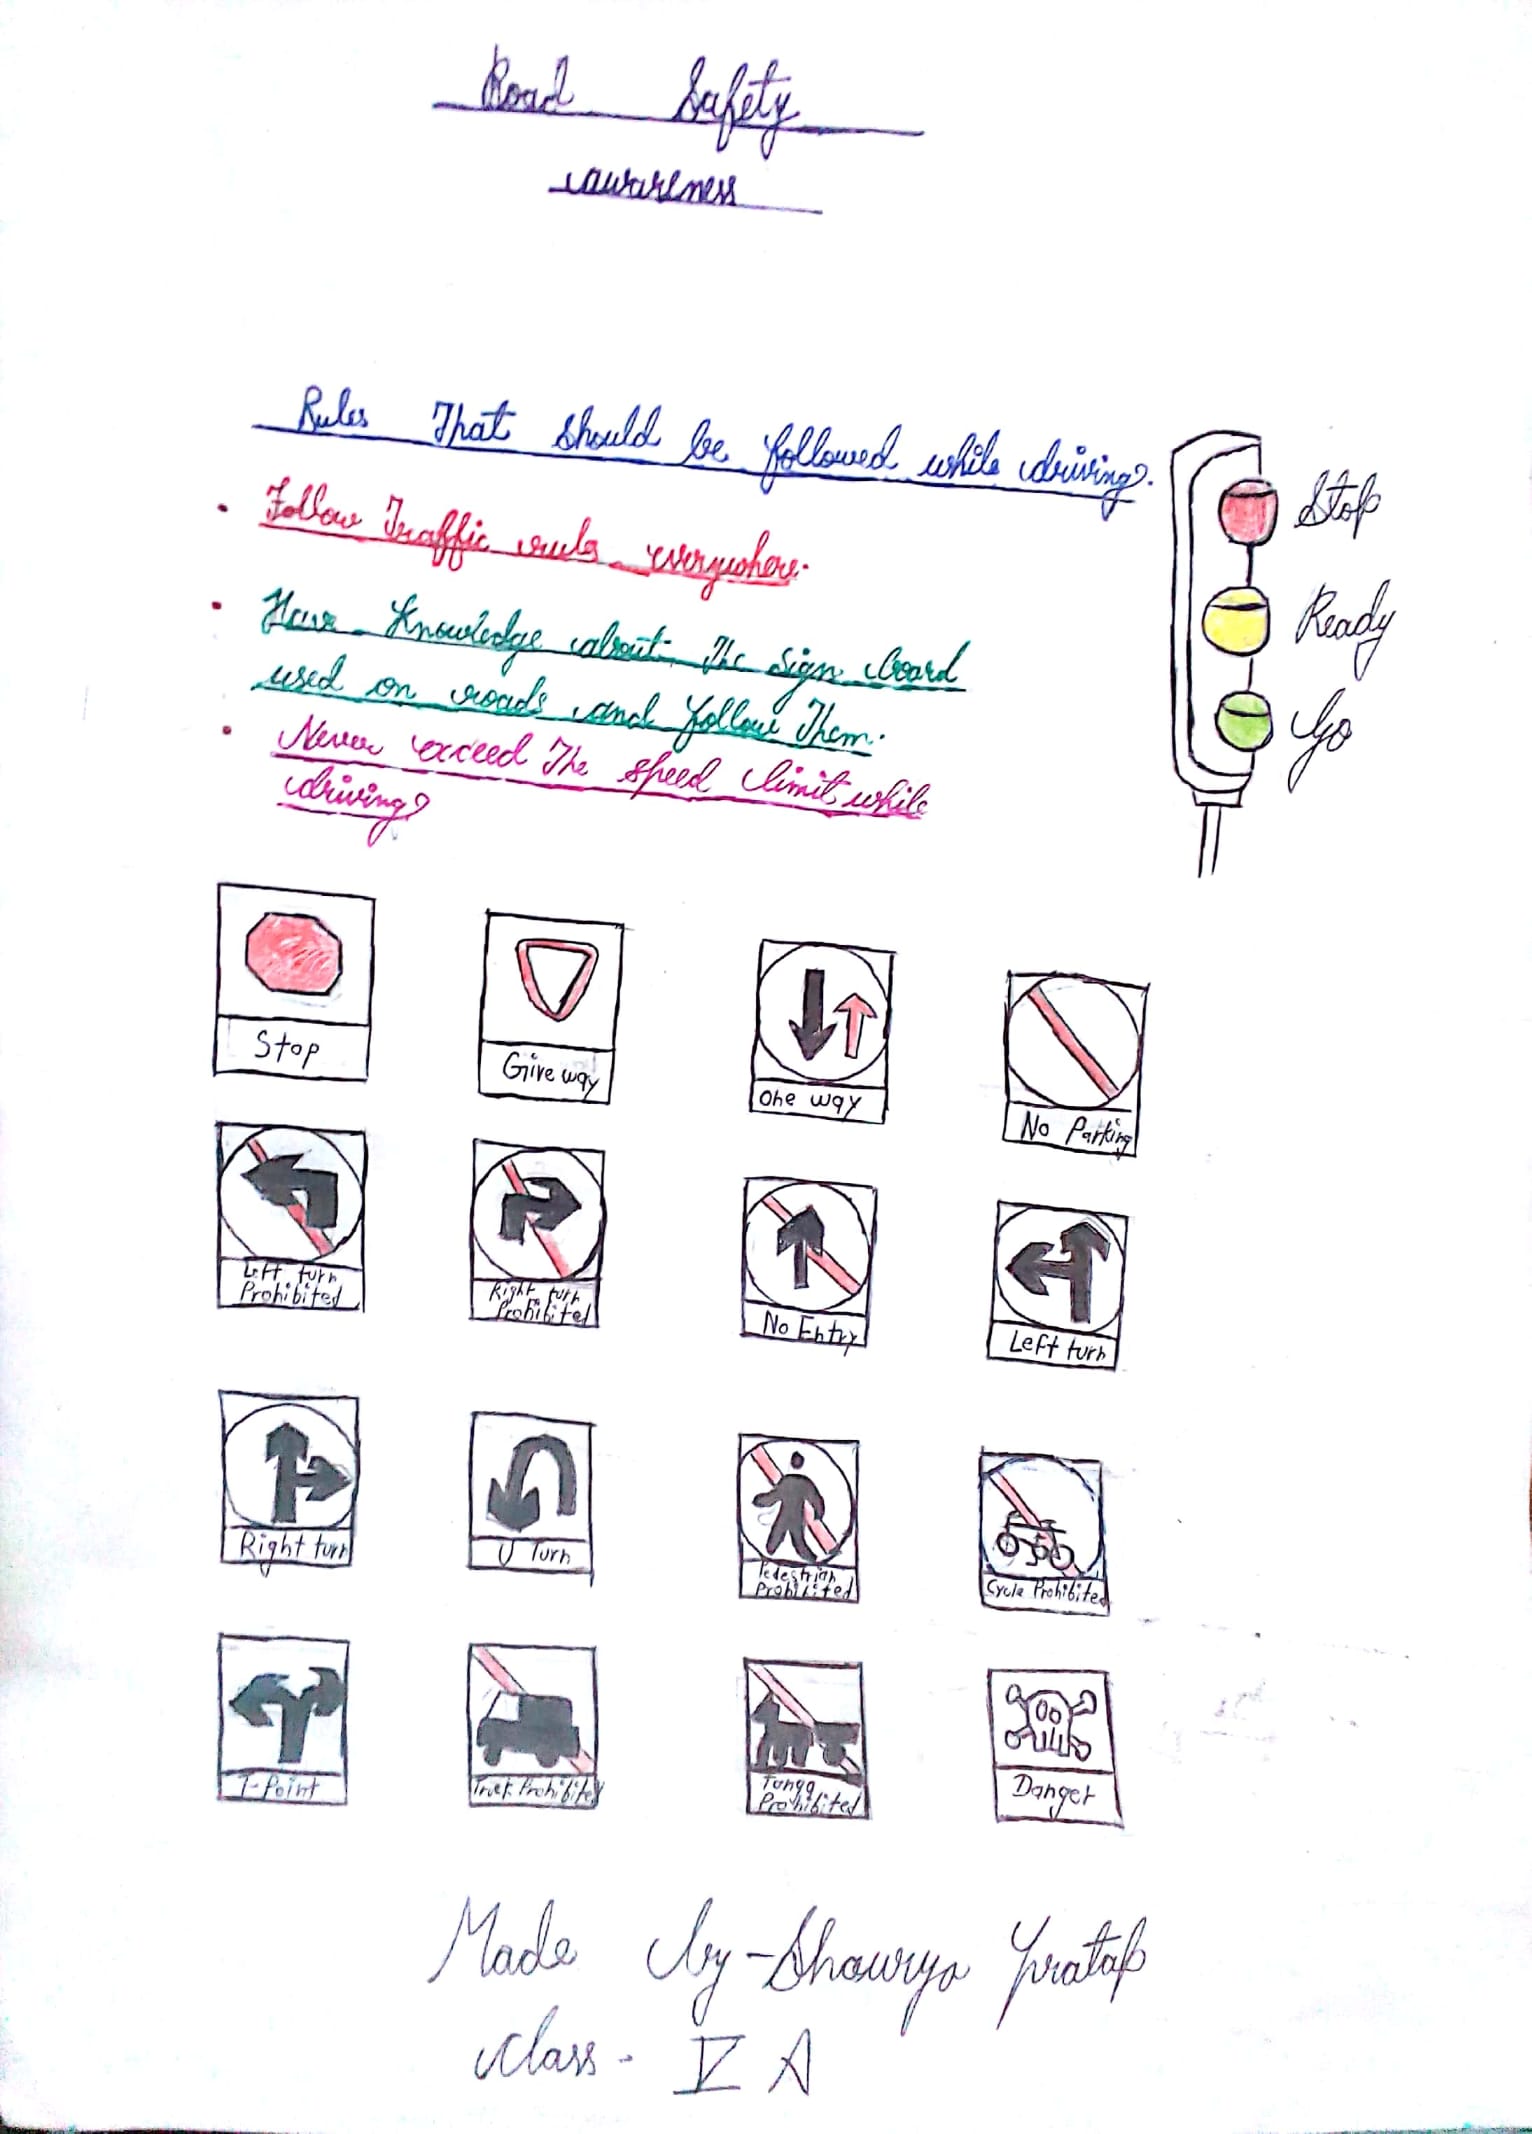 Road Safety
awareness
Rules That should be followed while driving.
• Follow Traffic rules everywhere.
• Have Knowledge about The sign board
used on roads and follow Them.
• Never exceed The speed limit while
driving
Stop
Ready
Go
Stop
Give way
One way
No Parking
Left turn
Prohibited
Right turn
Prohibited
No Entry
Left turn
Right turn
U Turn
Pedestrian
Prohibited
Cycle Prohibited
T-Point
Truck Prohibited
Tonga
Prohibited
Danger
Made by - Shourya Pratap
class - V A